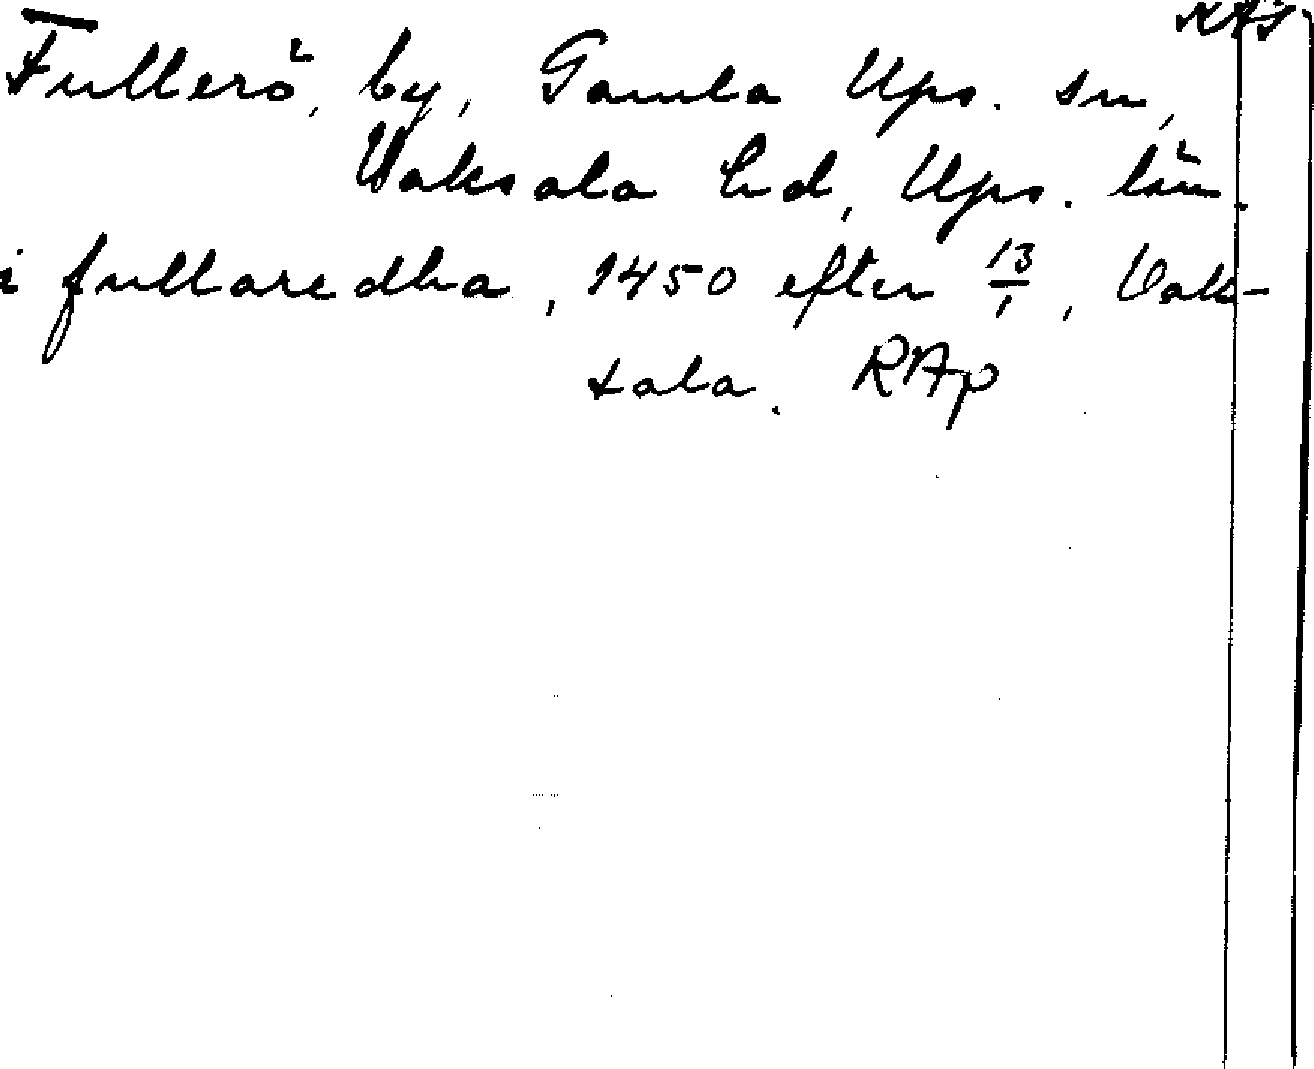 Fullerö, by, Gamla Ups. sn,
Vaksala hd, Ups. län.
i fullaredha, 1450 efter 13/1, Vak-
sala. RAp